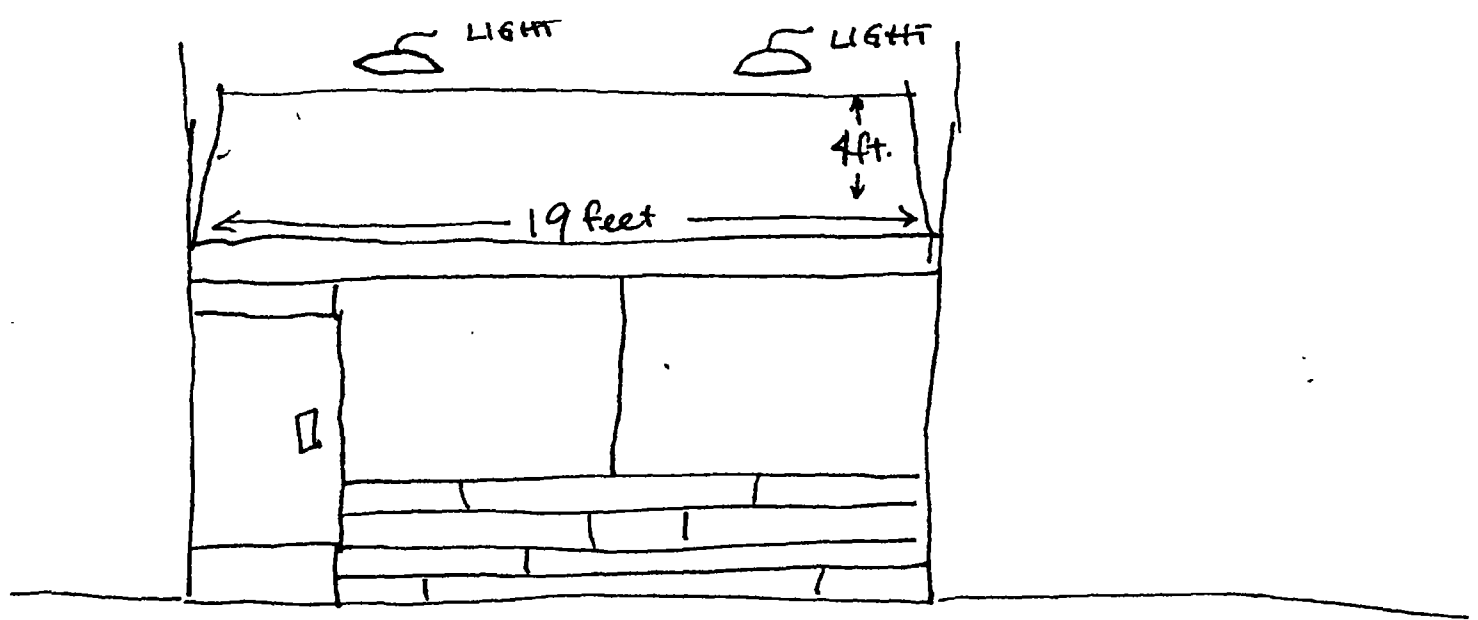 LIGHT
LIGHT
4ft.
19 feet